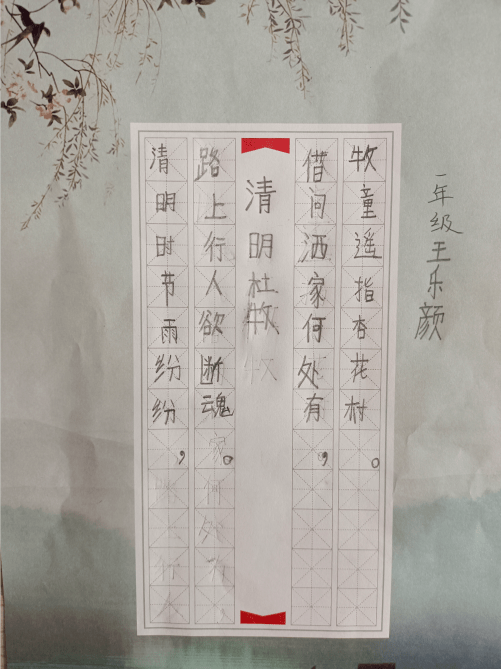 清明时节雨纷纷，
路上行人欲断魂。
清明杜牧
借问洒家何处有，
牧童遥指杏花村。
一年级王乐颜